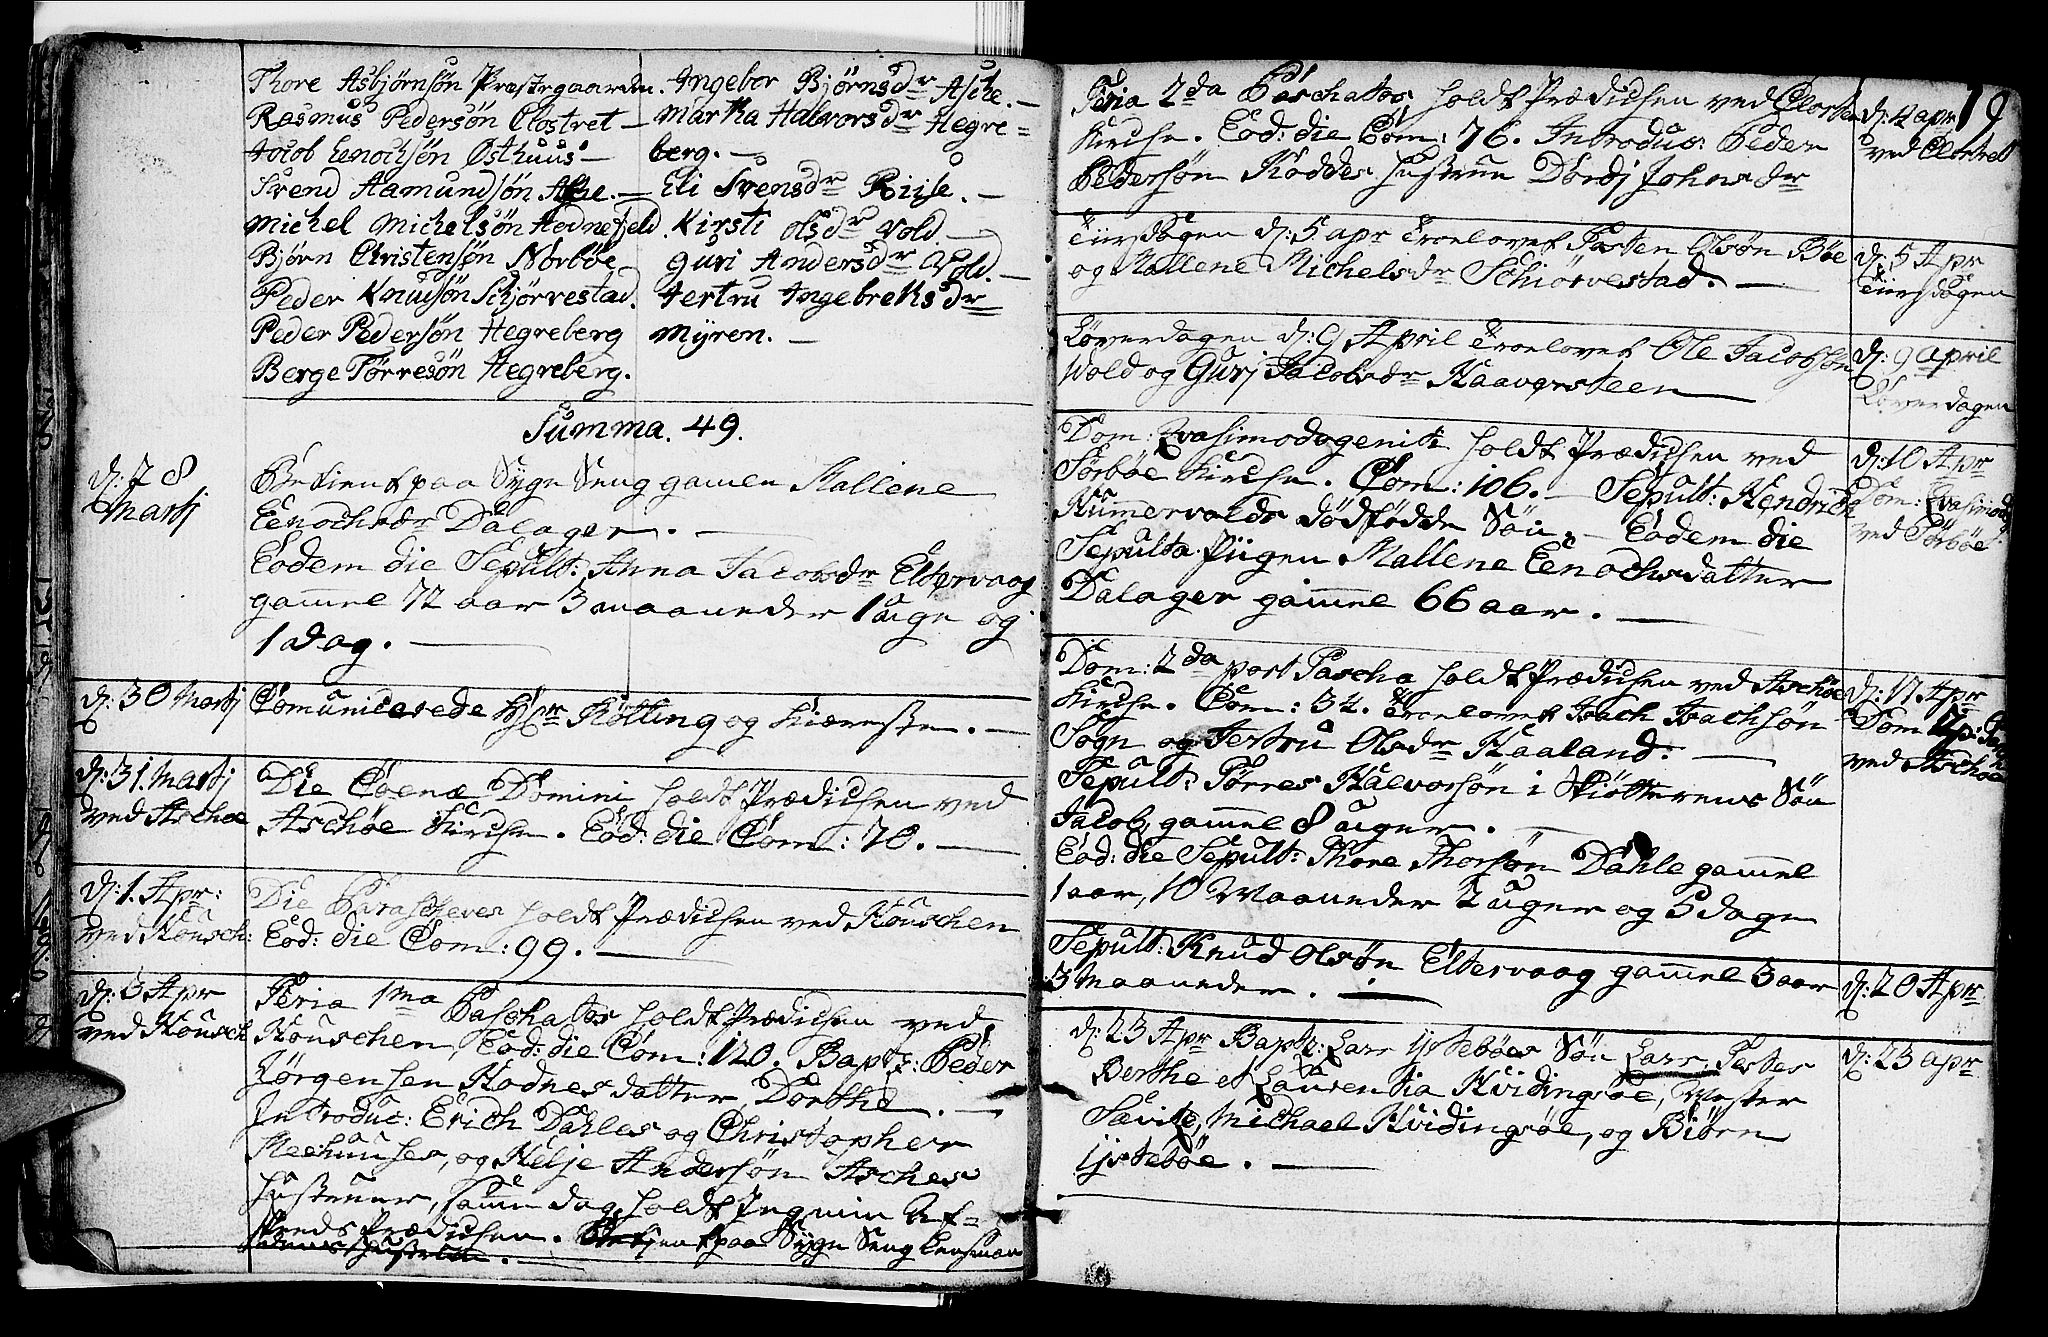 Thore Asbjørnsøn Præstegaarden.
Rasmus Pedersøn Clostret
Jocob Eenochsøn Østhuus
Svend Aamundsøn Aske.
Michel Michelsøn Hodnefjeld
Bjørn Christensøn Nørbøe
Peder Knudsøn Schjørrestad.
Peder Pedersøn Hegreberg
Berge Tørresøn Hegreberg.
Ingebor Bjørnsdr Aske.
Martha Halvorsdr Hegre=
berg.
Eli Svensdr Riise.
Kirsti Olsdr Vold.
Guri Andersdr Vold.
Jertru Ingebretsdr
Myren.
Summa. 49.
d: 28
Martj
Betient paa Syge Seng gamle Mallene
Eenochsdr Dalager.
Eodem die Sepult: Anna Jacobsdr Eltervaag
gam̄el 72 aar 3 maaneder 1 uge og
1 dag.
d: 30 Martj
Com̄unicerede Hr Kølling og Kiæreste.
d: 31. Martj
ved Aschøe
Die Coenæ Domini holdt Prædichen ved
Aschøe Kirche. Eod: die Com: 70.
d: 1. Apr:
ved Housch:
Die Parascheves holdt Prædichen ved Houschen
Eod: die Com: 99.
d: 3 Apr
ved Housch
Feria 1ma Paschatos holdt Prædichen ved
Houschen, Eod: die Com: 120. Bapt: Peder
Jørgensen Hodnes datter, Dorthe.
Introduc: Erich Dahles og Christopher
og Helje Andersøn Asches
Hustruer, sam̄e dag holdt Ingmin Af=
Prædichen. Betjent paa Syge Seng Lensman
19
Feria 2da Paschatos holdt Prædichen ved Closter
Kirche. Eod: die Com: 76. Introduc: Peder
Pedersøn Hustrue Dordj Johnsdr
d: 4 apr
ved Clostret
Tiirsdagen d: 5 apr Troelovet Olsøn Bøe
og Mallene Michelsdr Schiørvestad.
d: 5 Apr
Tiirsdagen
Løverdagen d: 9 April Troelovet Ole Jacobsøn
Wold og Gurj Jacobsdr Haavarsteen
d: 9 april
Løverdagen
Dom: Qvasimodogeniti holdt Prædichen ved
Sørbøe Kirche. Com: 106. Sepult: Hendrich
dødfødde Søn. Eodem die
Sepulta Piigen Mallene Eenochsdatter
Dalager gam̄el 66 aar.
d: 10 Apr
Dom: Qvasimodog
ved Sørbøe
Dom: 2da post Pascha holdt Prædichen ved Aschøe
Kirche. Com: 34. Troelovet Isach Isachsøn
Sogn og Jertru Olsdr Haaland.
Sepult: Tørres Halvorsøn i Søn
Jacob, gam̄el 8 uger.
Eod: die Sepult: Thore Thorsøn Dahle gam̄el
1 aar, 10 Maaneder 2 uger og 5 dage
d: 17 Apr
Dom
ved Aschøe
Sepult: Knud Olsøn Eltervaag gam̄el 3 aar
3 Maaneder.
d: 20 Apr
d: 23 Apr Bapt: Lars Ystebøes Søn Lars. Testes
Berthe et Laurentia Hvidingsøe, Mester
Michael Hvidingsøe, og Biørn
Ystebøe.
d: 23 apr